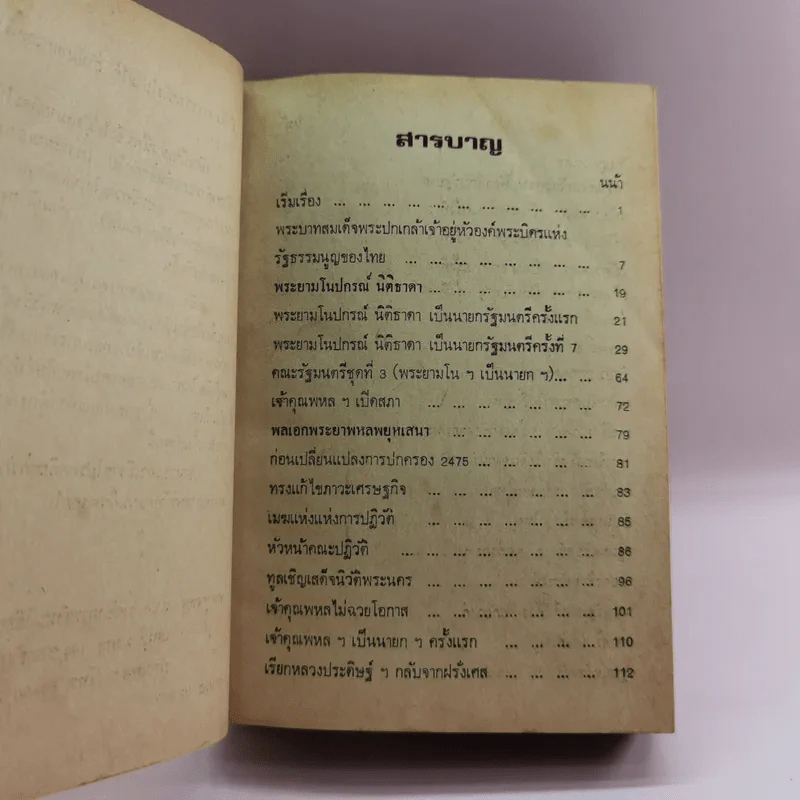 สารบาญ
หน้า
เริ่มเรื่อง ... ... ... ... ... ... ... ... ... ... ... 1
พระบาทสมเด็จพระปกเกล้าเจ้าอยู่หัวองค์พระบิดรแห่ง
รัฐธรรมนูญของไทย ... ... ... ... ... ... ... ... 7
พระยามโนปกรณ์ นิติธาดา ... ... ... ... ... ... ... 19
พระยามโนปกรณ์ นิติธาดา เป็นนายกรัฐมนตรีครั้งแรก 21
พระยามโนปกรณ์ นิติธาดา เป็นนายกรัฐมนตรีครั้งที่ 7 29
คณะรัฐมนตรีชุดที่ 3 (พระยามโน ฯ เป็นนายก ฯ)... ... 64
เจ้าคุณพหล ฯ เปิดสภา ... ... ... ... ... ... ... 72
พลเอกพระยาพหลพยุหเสนา ... ... ... ... ... ... 79
ก่อนเปลี่ยนแปลงการปกครอง 2475 ... ... ... ... ... 81
ทรงแก้ไขภาวะเศรษฐกิจ ... ... ... ... ... ... ... 83
เมฆแห่งแห่งการปฏิวัติ ... ... ... ... ... ... ... 85
หัวหน้าคณะปฏิวัติ ... ... ... ... ... ... ... ... 86
ทูลเชิญเสด็จนิวัติพระนคร ... ... ... ... ... ... ... 96
เจ้าคุณพหลไม่ฉวยโอกาส ... ... ... ... ... ... ... 101
เจ้าคุณพหล ฯ เป็นนายก ฯ ครั้งแรก ... ... ... ... 110
เรียกหลวงประดิษฐ์ ฯ กลับจากฝรั่งเศส ... ... ... ... 112